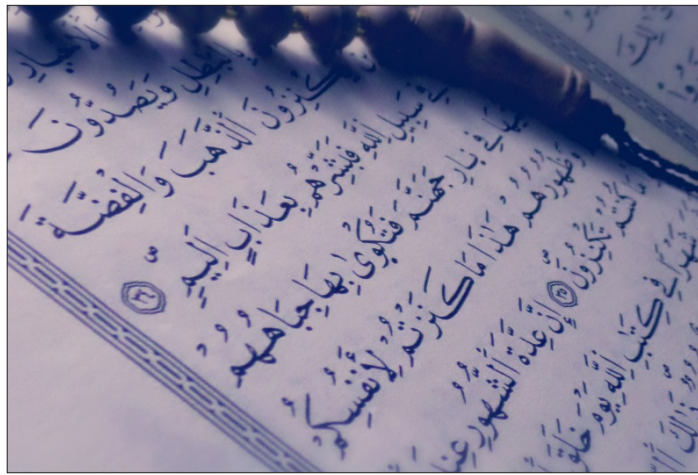 بِالْبَٰطِلِ وَيَصُدُّونَ
يَكْنِزُونَ ٱلذَّهَبَ وَالْفِضَّةَ
فِي سَبِيلِ ٱللَّهِ فَبَشِّرْهُم بِعَذَابٍ اَلِيمٍ ٣٤
فِي نَارِ جَهَنَّمَ فَتُكْوَىٰ بِهَا جِبَاهُهُمْ
وَظُهُورُهُمْ هَٰذَا مَا كَنَزْتُمْ لِأَنفُسِكُمْ
مَا كُنتُمْ تَكْنِزُونَ ٣٥ إِنَّ عِدَّةَ ٱلشُّهُورِ عِندَ
شَهْرًا فِي كِتَٰبِ ٱللَّهِ يَوْمَ خَلَقَ
ذَٰلِكَ